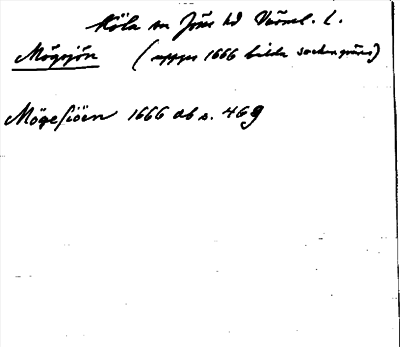 Köla sn Jösse hd Värml. l.
Mögsjön (uppges 1666 bilda sockengräns)
Mögesiöen 1666 ab s. 469